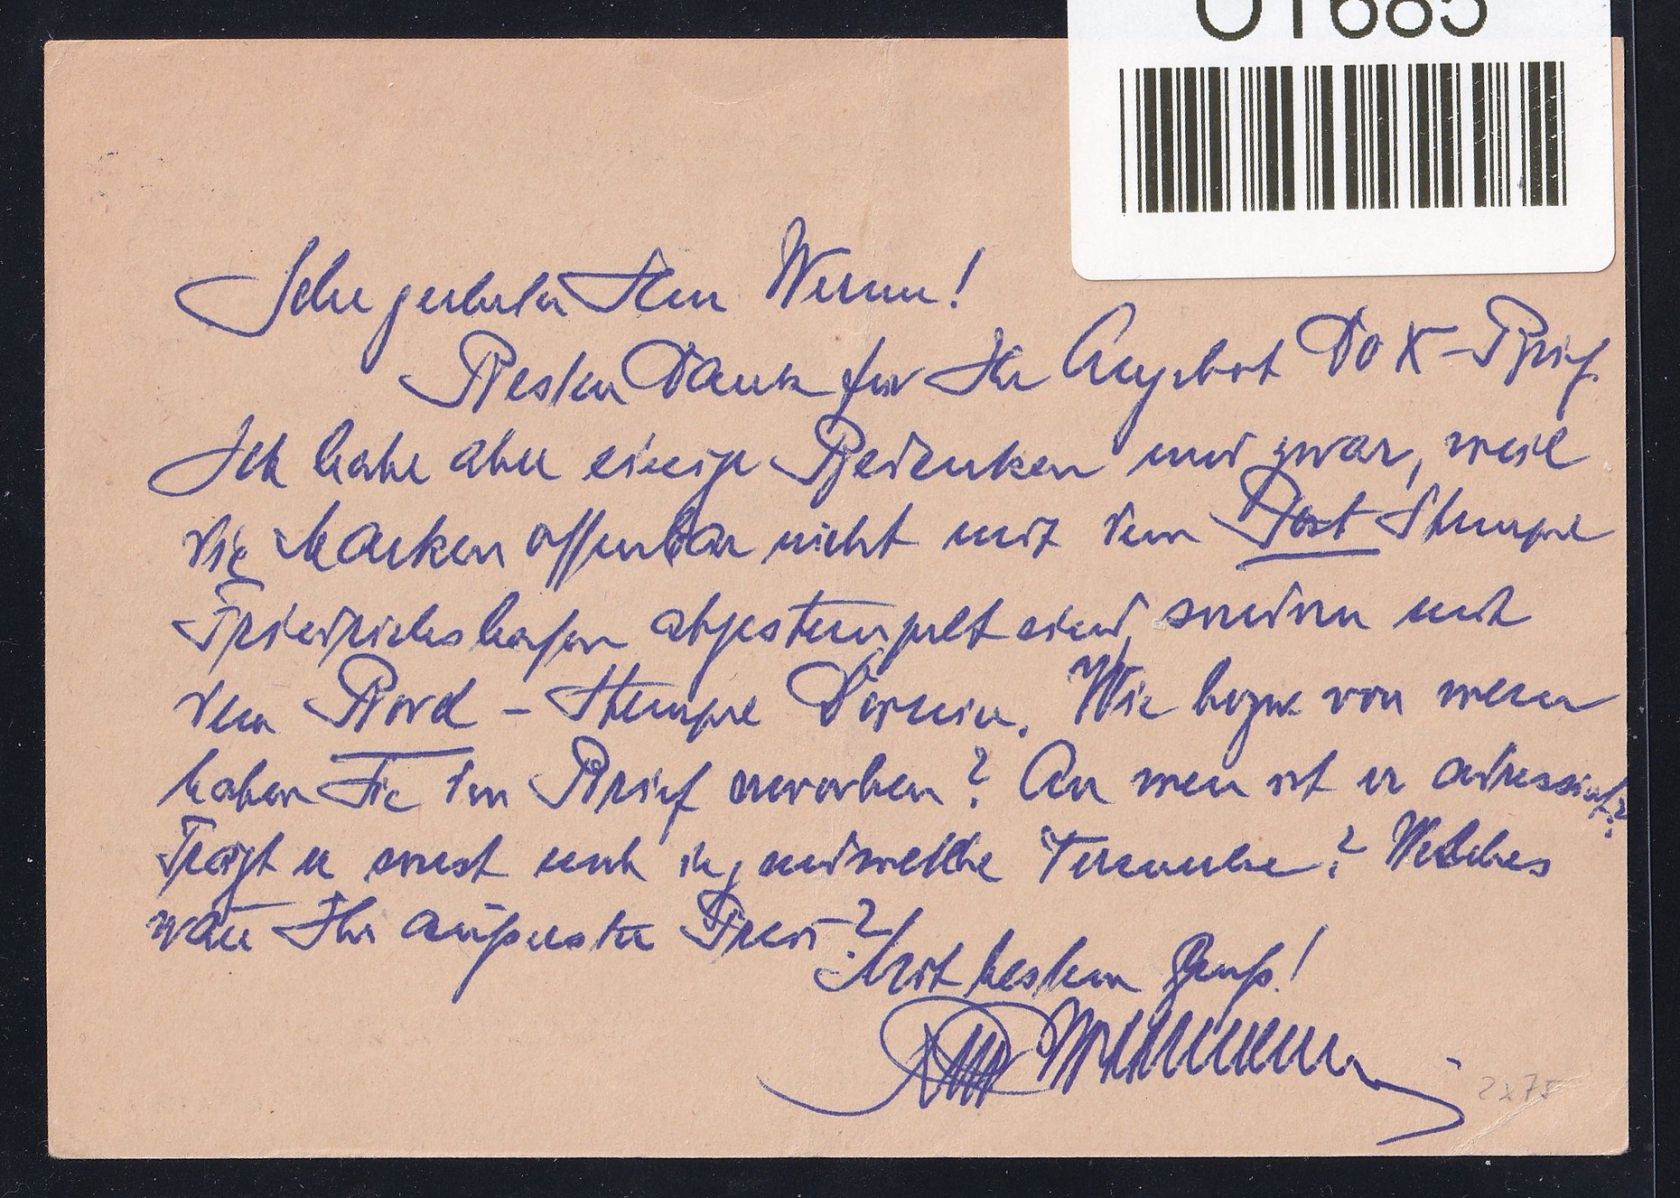 01685
Sehr geehrter Herr Werner!
Besten Dank für Ihr Angebot DO X-Brief.
Ich habe aber einige Bedenken und zwar, weil
die Marken offenbar nicht mit dem Post-Stempel
Friedrichshafen abgestempelt sind, sondern mit
dem Bord-Stempel Dornier. Wie bzw. von wem
haben Sie den Brief erworben? An wen ist er adressiert?
Trägt er sonst noch irgendwelche Vermerke? Welches
wäre Ihr äußerster Preis?
Mit bestem Gruß!
2x75